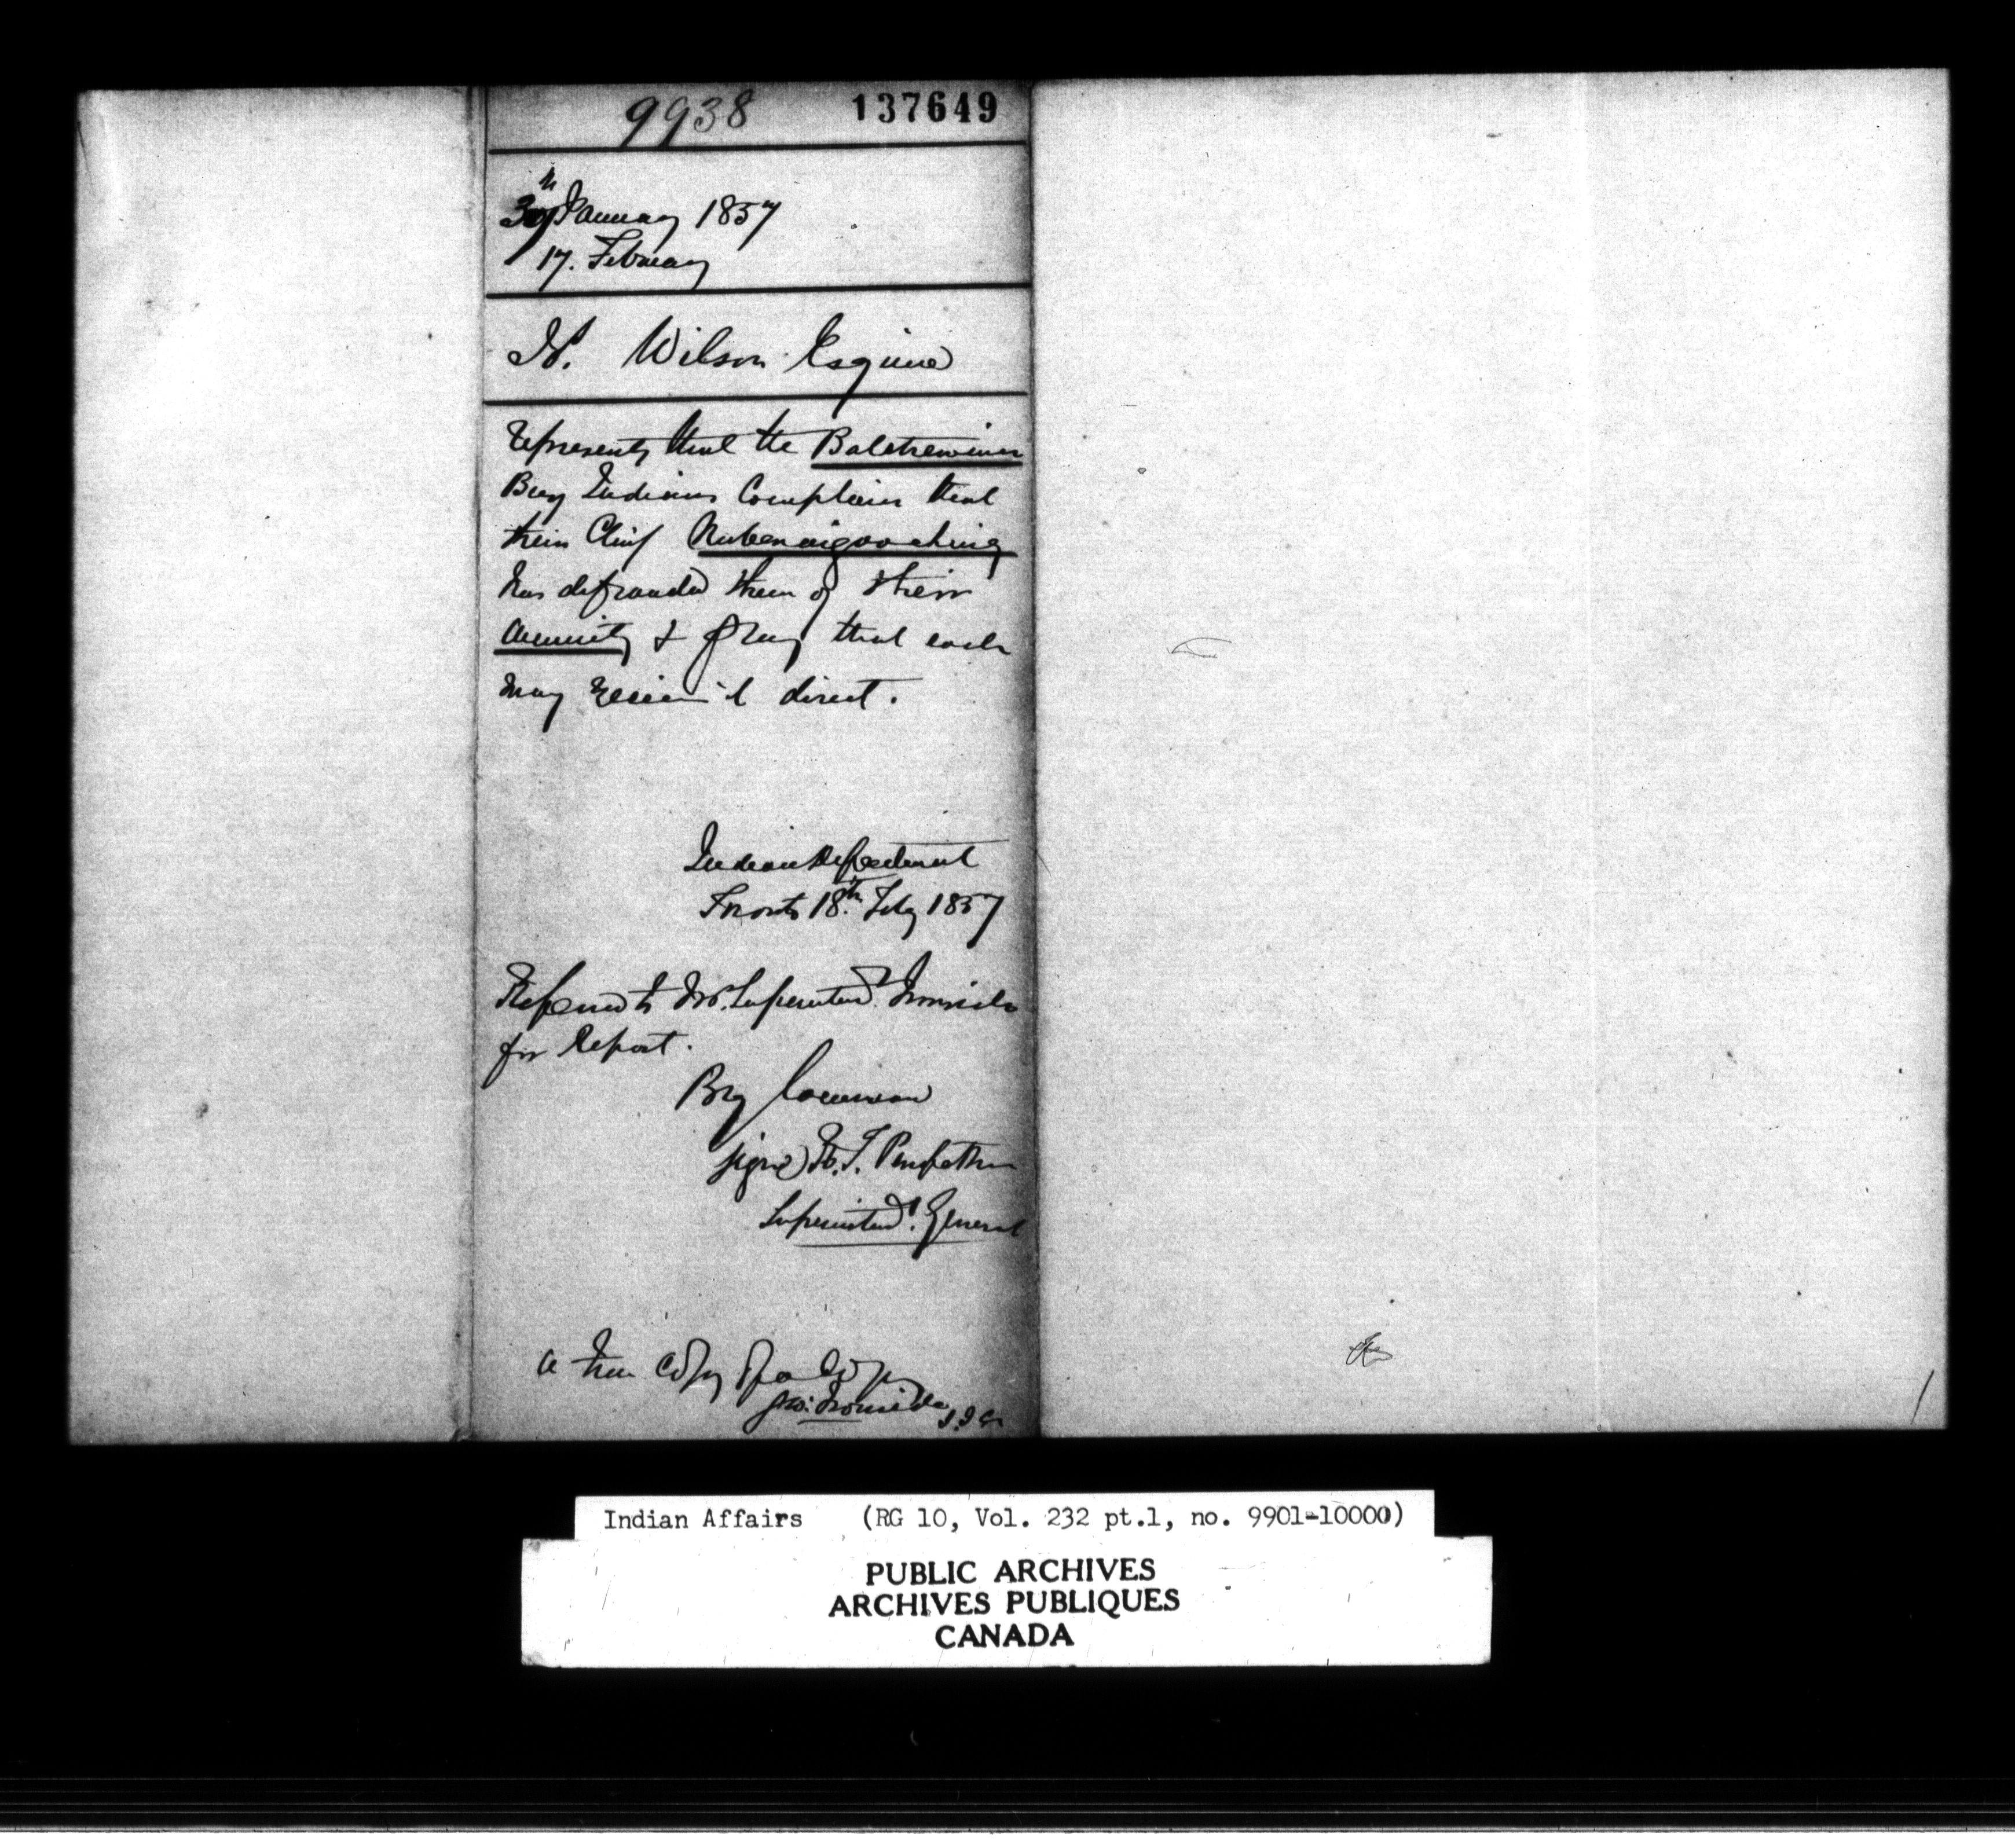 9938 137649
30th January 1857
17. February
W. Wilson Esquire
represents that the Batchewinan
Bay Indians Complain that
their Chief Nubenaigooching
has defrauded them of their
annuity & pray that each
may receive it direct.
Indian Department
Toronto 18th. Feby 1857
Referred to Mr. Superintend.t Ironside
for Report.
By Command
signed R. T. Pennefather
Superintend.t General
a true Copy
Geo: Ironside
Indian Affairs (RG 10, Vol. 232 pt.1, no. 9901-10000)
PUBLIC ARCHIVES
ARCHIVES PUBLIQUES
CANADA